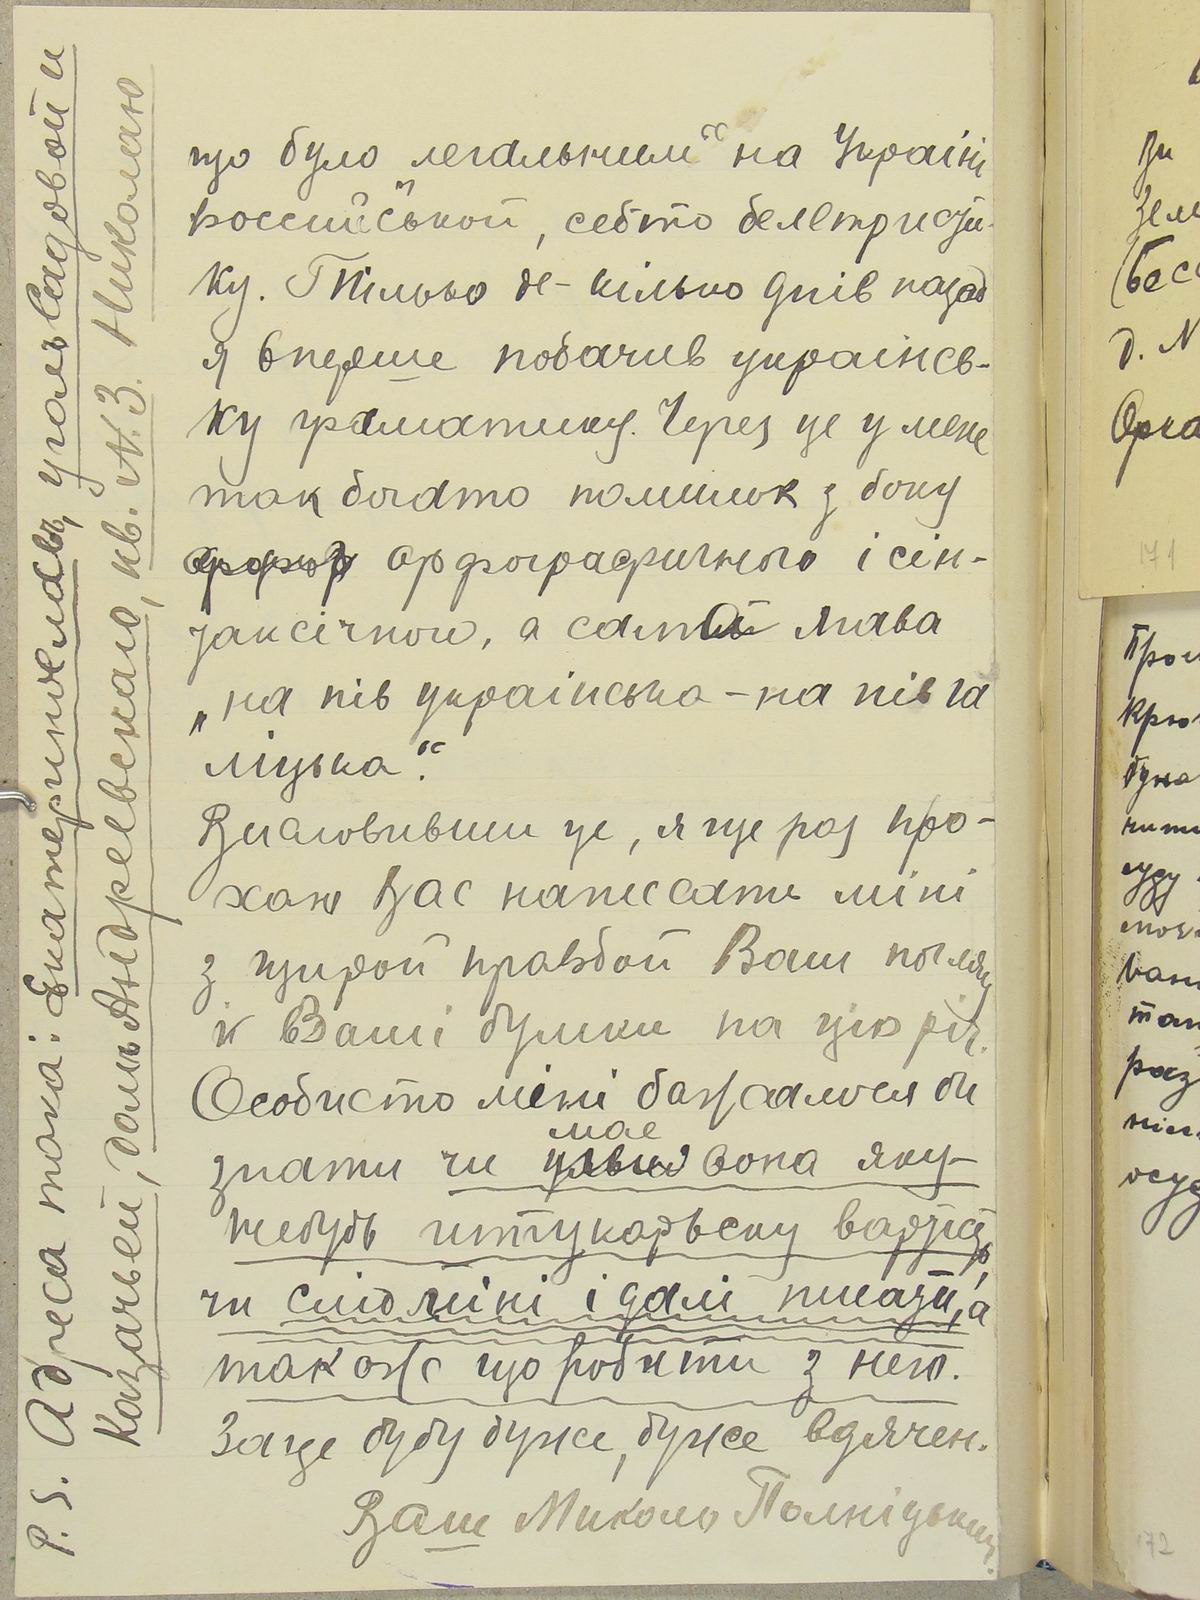 що було легальним“ на Украіні
„россиіській, себто белетристи-
ку. Тілько де-кілько днів назад
я вперше побачив украінсь-
ку граматику. Через це у мене
так богато помилок з боку
орфографичного і сін-
заксічного, а сама мава
„на пів украінсько – на пів га
ліцька“.
Висловивши це, я ще раз про-
хаю Вас написати міні
з щирой правдой Ваш погляд
й Ваші думки на цю річ.
Особисто міні бажалося би
знати чи має вона яку-
небудь штукарьску вартість,
чи слід міні і далі писати, а
також що робити з нею.
За це буду дуже, дуже вдячен.
Ваш Микола
P.S. Адреса така: Екатеринославъ, уголъ Садовой и
Казачьей, домъ Андреевскаго, кв. №3. Николаю
Ви
зем
(Бесс
д. N
Орга
171
Пром
крю
дума
мож
вам
так
раз
осуд
172